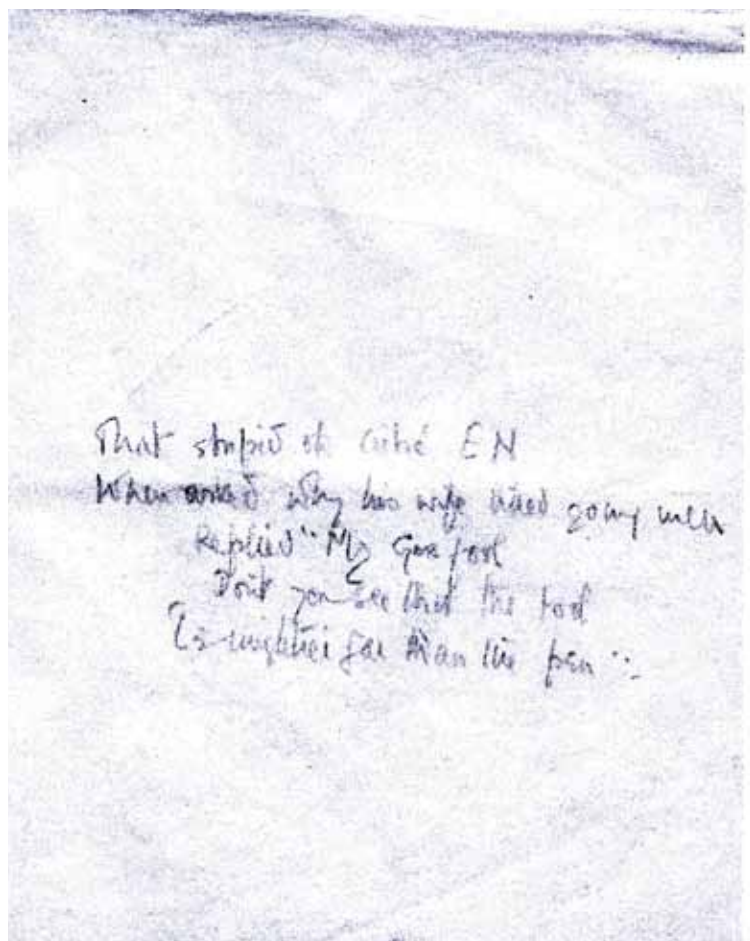 That stupid ol critic EN
When asked why his wife liked young men
Replied "My Gra fool
Don't you see that the tool
Is mightier far than the pen".